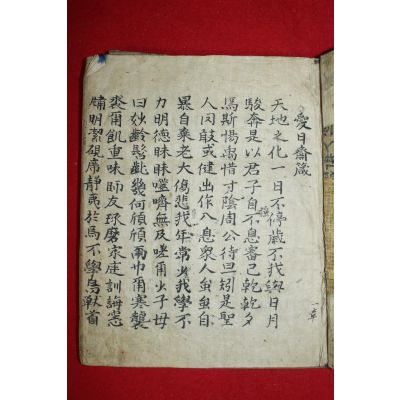 愛日齋箴
天地之化一日不停歲不我與日月
駿奔是以君子自强不息審己乾乾夕
焉斯惕禹惜寸陰周公待旦矧是聖
人罔敢或健出作入息衆人蚩蚩自
暴自棄老大傷悲我年常少我學不
力明德昧昧噬臍無及嗟爾小子毋
曰妙齡髫齔幾何頎頎爾巾爾寒襲
裘爾飢重味師友球磨家庭訓誨窓
牖明潔硯席靜夷於焉不學鳥獸首
一章